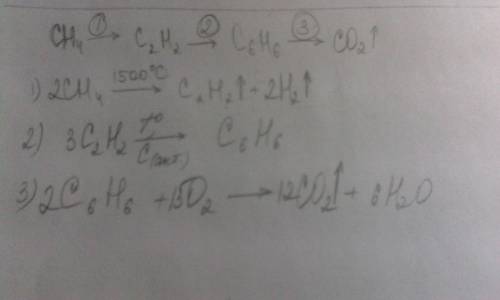 CH₄ ①→ C₂H₂ ②→ C₆H₆ ③→ CO₂↑
1) 2CH₄ 1500°C→ C₂H₂↑ + 2H₂↑
2) 3C₂H₂ t°→ C(акт.) C₆H₆
3) 2C₆H₆ + 15O₂ → 12CO₂↑ + 6H₂O